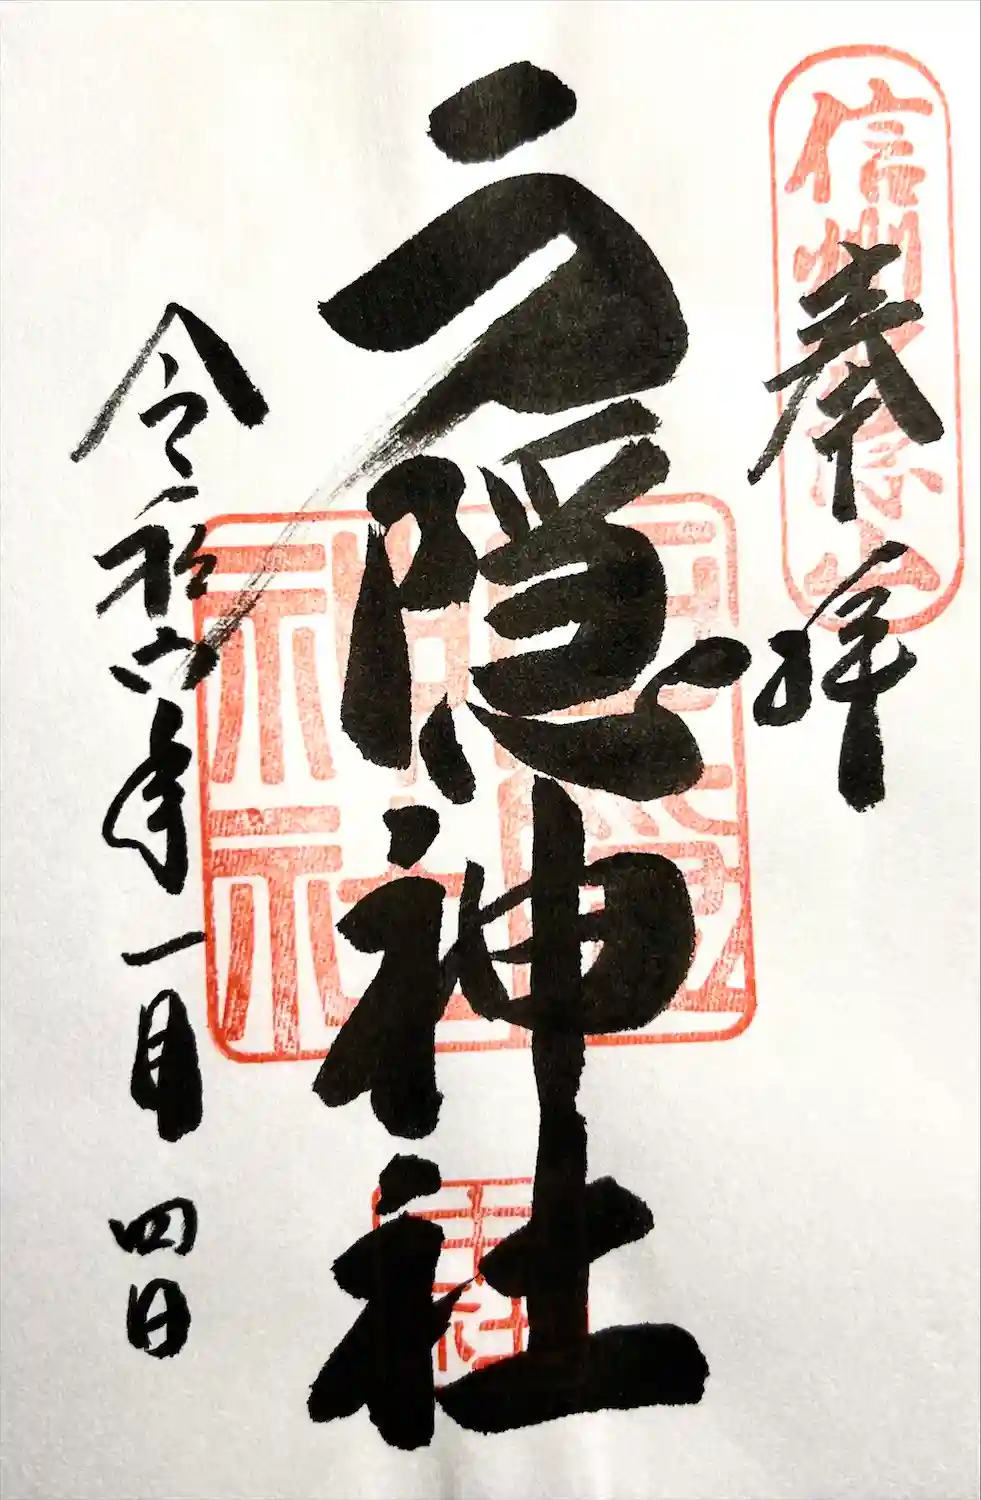 奉拝
信州戸隠山
戸隠神社
戸隠神社
令和六年一月四日